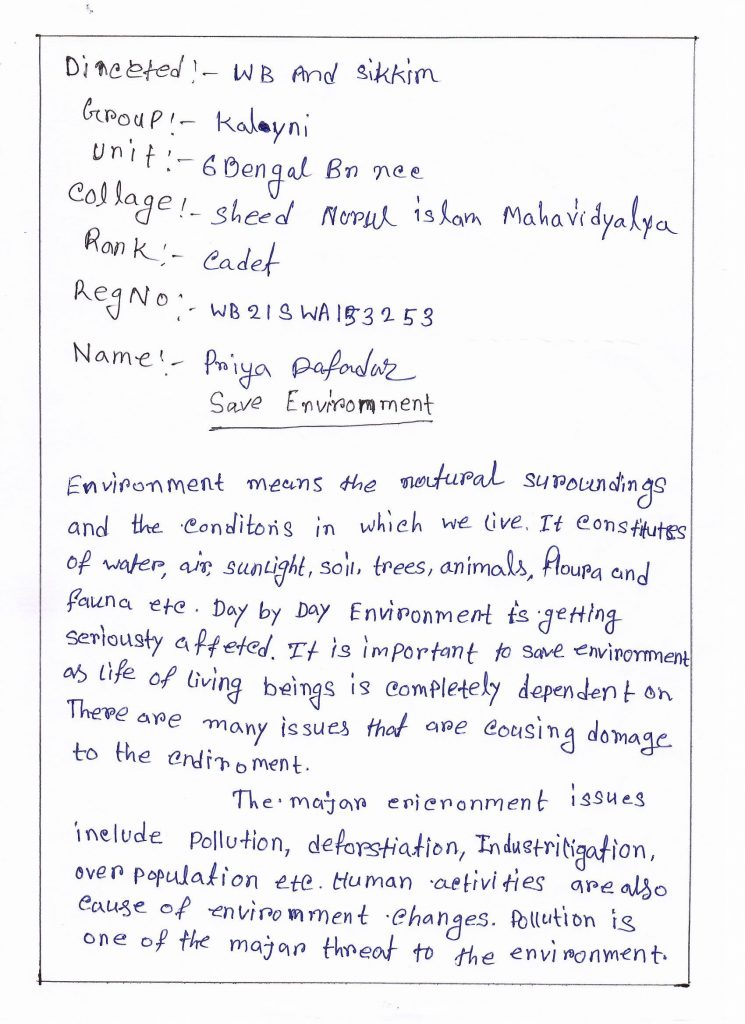 Dinceted!- WB And Sikkim
Group!- Kalayni
Unit!- 6 Bengal Bn ncc
Collage!- Sheed Norul islam Mahavidyalya
Rank!- Cadet
Reg No:- WB21SWA153253
Name!- Priya Dafadar
Save Enviromment
Environment means the natural suroundings
and the conditons in which we live. It constitutes
of water, air, sunlight, soil, trees, animals, floura and
fauna etc. Day by Day Environment is getting
seriousty affeted. It is important to save environment
as life of living beings is completely dependent on
There are many issues that are cousing domage
to the endiroment.
The majar enicronment issues
include Pollution, deforstiation, Industriligation,
over population etc. Human activities are also
cause of enviromment changes. Pollution is
one of the majar threat to the environment.